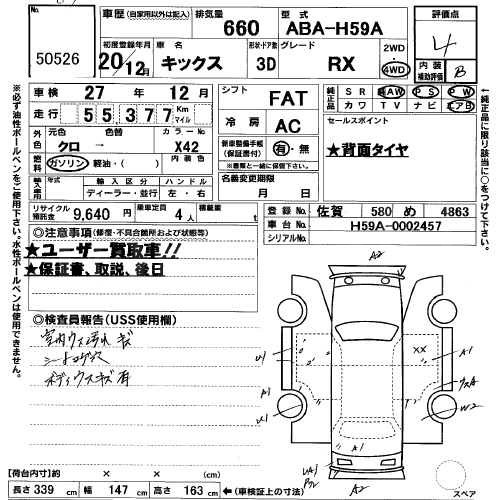 50526
車歴 (自家用以外は記入)
排気量 660
型式 ABA-H59A
初度登録年月 20年12月
車名 キックス
形状・ドア数 3D
グレード RX
2WD
4WD
評価点 4
内装補助評価 B
車検 27年12月
走行 55,377 Km マイル
シフト FAT
純正品 SR AW PS PW
カワ TV ナビ エアB
外色 元色 クロ → 色替
カラーNo X42
内装色
冷房 AC
燃料 ガソリン 軽油・( )
新車整備手帳(保証書付) 有・無
※書類と一緒に保管して下さい。
セールスポイント
★背面タイヤ
輸入車用 年式 輸入区分 ハンドル
ディーラー・並行 左・右
名義変更期限
月 日
リサイクル預託金 9,640円
乗車定員 4人
積載量 t
登録No 佐賀 580 め 4863
車台 H59A-0002457
シリアルNo
◎注意事項(修復・不具合箇所および状態等)
★ユーザー買取車!!
★保証書、取説、後日
◎検査員報告(USS使用欄)
室内ウス汚れ キズ
シートコゲ穴
ボディウスキズ有
A2
U1
A1
U1
XX
A1
ウスA
W2
A2
【荷台内寸】約 × × (cm)
長さ 339 cm 幅 147 cm 高さ 163 cm ←(車検証上の寸法)
スペア
※必ず油性ボールペンをご使用下さい。水性ボールペンは使用できません。
↑純正品に限り該当に○をつけて下さい。